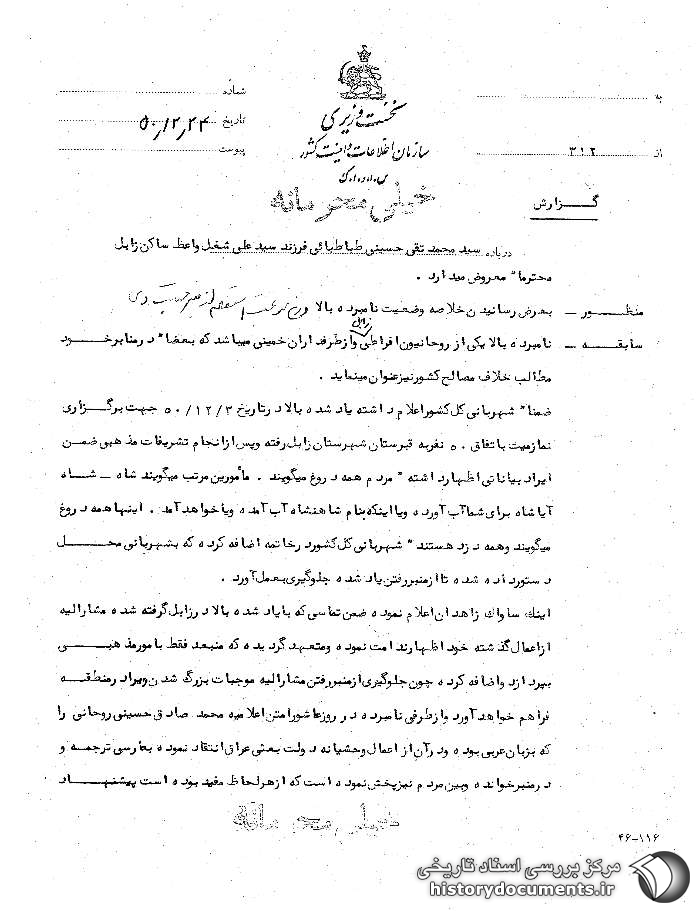 نخست وزیری
سازمان اطلاعات و امنیت کشور
س.ا.و.ا.ک
به
شماره
از ۳۱۲
تاریخ ۵۰/۱۲/۲۴
پیوست
خیلی محرمانه
گزارش
درباره سید محمد تقی حسینی طباطبائی فرزند سید علی شغل واعظ ساکن زابل
محترماً معروض میدارد .
منظور ـ بعرض رسانیدن خلاصه وضعیت نامبرده بالا
سابقه ـ نامبرده بالا یکی از روحانیون افراطی زابل و از طرفداران خمینی میباشد که بعضاً در منابر خود
مطالب خلاف مصالح کشور نیز عنوان مینماید .
ضمناً شهربانی کل کشور اعلام داشته یاد شده بالا در تاریخ ۵۰/۱۲/۳ جهت برگزاری
نماز میت باتفاق ۵۰ نفر به قبرستان شهرستان زابل رفته و پس از انجام تشریفات مذهبی ضمن
ایراد بیاناتی اظهار داشته " مردم همه دروغ میگویند . مأمورین مرتب میگویند شاه ـ شاه
آیا شاه برای شما آب آورده و یا اینکه بنام شاهنشاه آب آمده و یا خواهد آمد . اینها همه دروغ
میگویند و همه دزد هستند " شهربانی کل کشور در خاتمه اضافه کرده که بشهربانی محل
دستور داده شده تا از منبر رفتن یاد شده جلوگیری بعمل آورد .
اینك ساواك زاهدان اعلام نموده ضمن تماسی که با یاد شده بالا در زابل گرفته شده مشارالیه
از اعمال گذشته خود اظهار ندامت نموده و متعهد گردیده که منبعد فقط بامور مذهبی
بپردازد و اضافه کرده چون جلوگیری از منبر رفتن مشارالیه موجبات بزرگ شدن ویرا در منطقه
فراهم خواهد آورد و از طرفی نامبرده در روز عاشورا متن اعلامیه محمد صادق حسینی روحانی را
که بزبان عربی بوده و در آن از اعمال وحشیانه دولت بعثی عراق انتقاد نموده بفارسی ترجمه و
در منبر خوانده و بین مردم نیز پخش نموده است که از هر لحاظ مفید بوده است پیشنهاد
خیلی محرمانه
۴۶-۱۱۶
مرکز بررسی اسناد تاریخی
historydocuments.ir